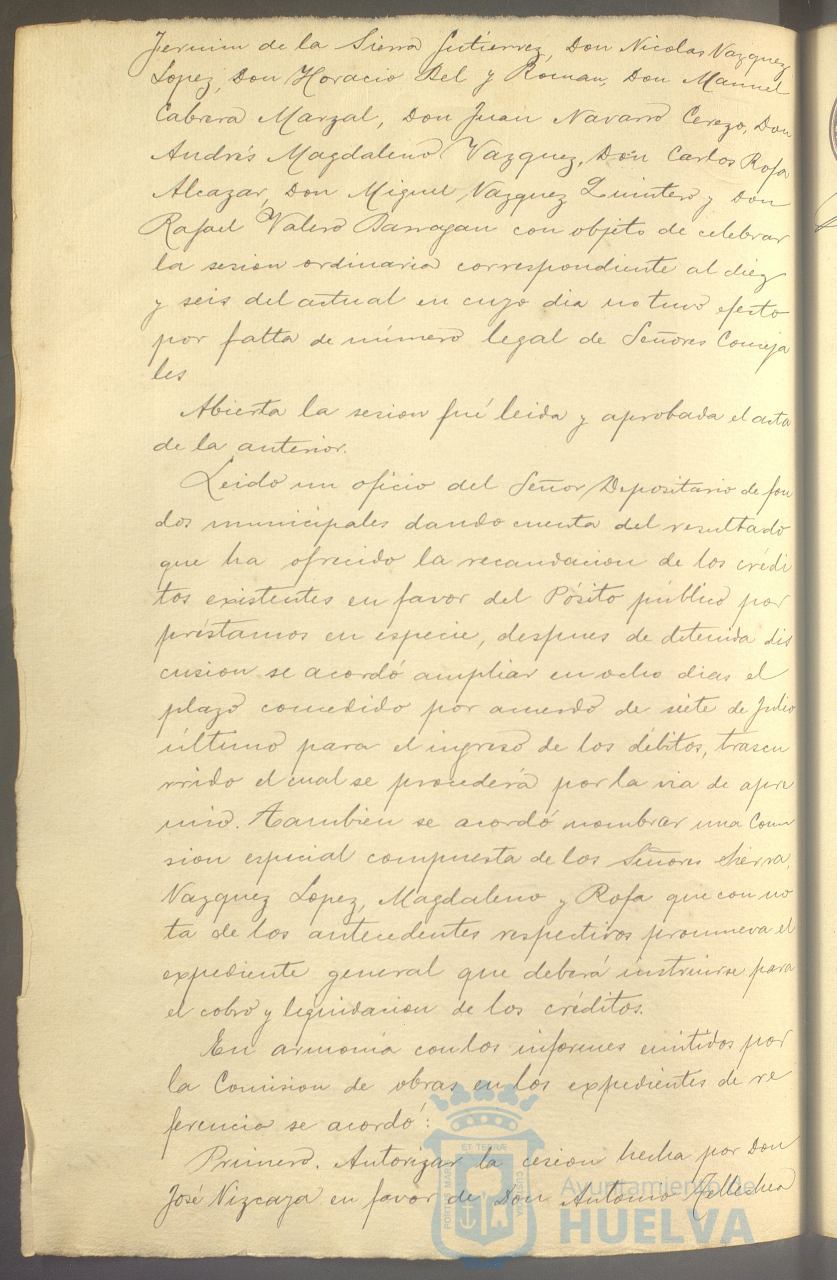 Fermin de la Sierra Gutierrez, Don Nicolas Vazquez
Lopez, Don Horacio Bel y Roman, Don Manuel
Cabrera Marzal, Don Juan Navarro Cerezo, Don
Andrés Magdaleno Vazquez, Don Carlos Rofa
Alcazar, Don Miguel Vazquez Quintero y Don
Rafael Valero Barragan con objeto de celebrar
la sesion ordinaria correspondiente al diez
y seis del actual en cuyo dia no tuvo efecto
por falta de número legal de Señores Conceja
les
Abierta la sesion fué leida y aprobada el acta
de la anterior.
Leido un oficio del Señor Depositario de fon
dos municipales dando cuenta del resultado
que ha ofrecido la recaudacion de los crédi
tos existentes en favor del Pósito público por
préstamos en especie, despues de detenida dis
cusion se acordó ampliar en ocho dias el
plazo concedido por acuerdo de siete de Julio
último para el ingreso de los débitos, trascu
rrido el cual se procederá por la via de apre
mio. Tambien se acordó nombrar una Comi
sion especial compuesta de los Señores Sierra,
Vazquez Lopez, Magdaleno y Rofa que con no
ta de los antecedentes respectivos promueva el
expediente general que deberá instruirse para
el cobro y liquidacion de los créditos.
En armonía con los informes emitidos por
la Comision de obras en los expedientes de re
ferencia se acordó:
Primero. Autorizar la cesion hecha por Don
José Vizcaya en favor de Don Antonio Tellechea
PORTUS MARIS
ET TERRÆ
CUSTODIA
Ayuntamiento de
HUELVA